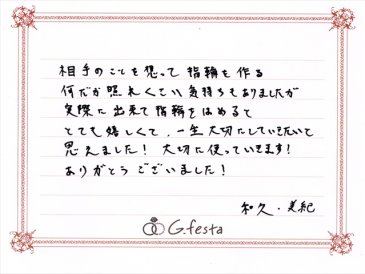 相手のことを想って指輪を作る
何だか照れくさい気持ちもありましたが
実際に出来て指輪をはめると
とても嬉しくて、一生大切にしていきたいと
思えました！大切に使っていきます！
ありがとうございました！
和久・美紀
G.festa